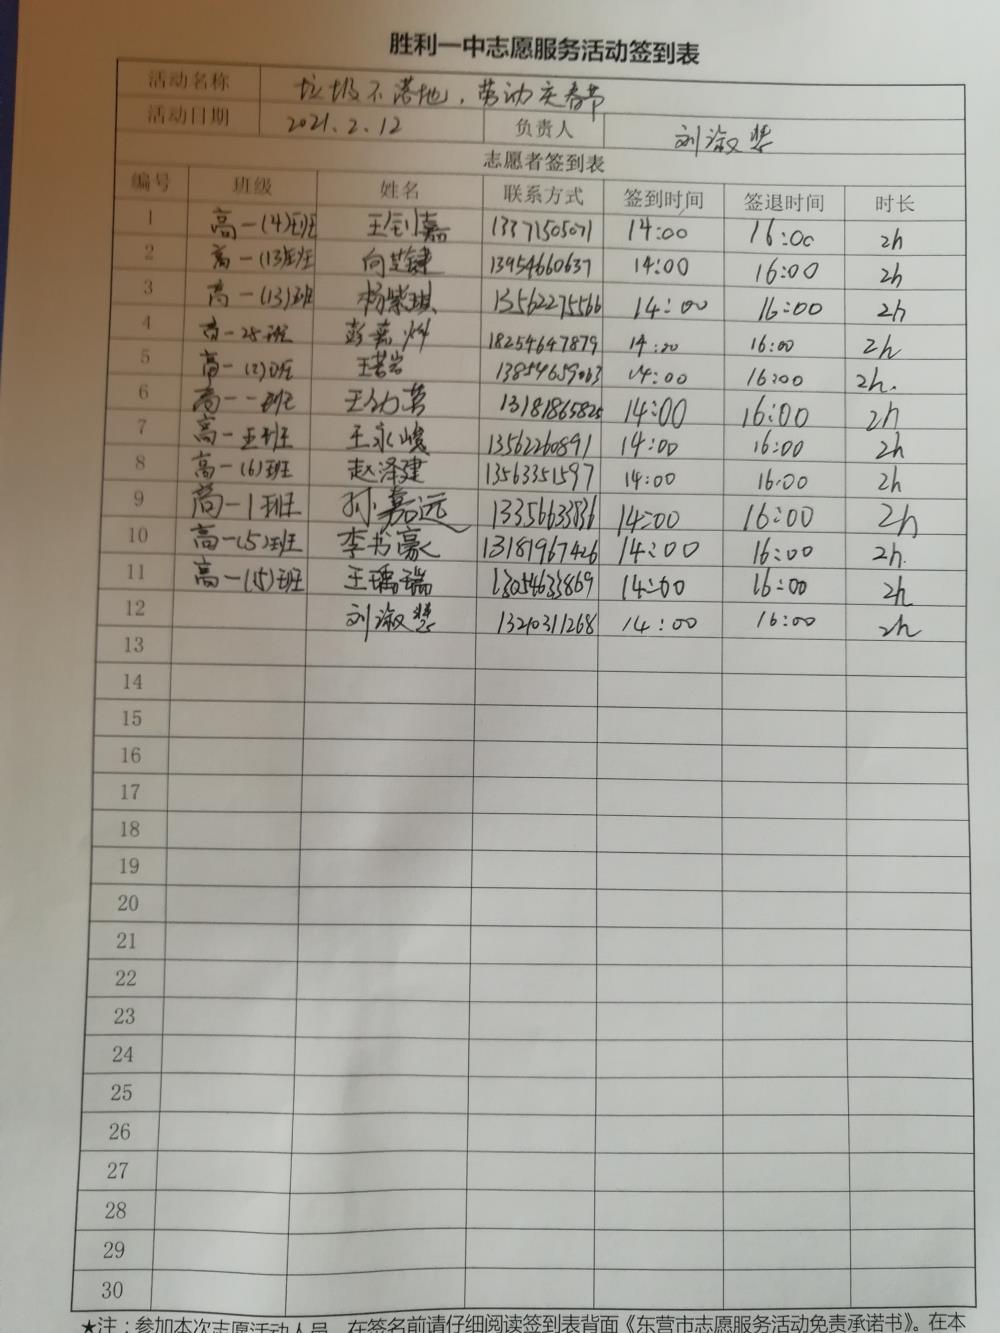 胜利一中志愿服务活动签到表
活动名称 垃圾不落地，劳动庆春节
活动日期 2021.2.12 负责人 刘淑慧
志愿者签到表
编号 班级 姓名 联系方式 签到时间 签退时间 时长
1 高一(4)班 嘉 13371505071 14:00 16:00 2h
2 高一(13)班 向 13954660637 14:00 16:00 2h
3 高一(13)班 杨紫琪 13562275566 14:00 16:00 2h
4 高一25班 彭嘉烨 18254647879 14:00 16:00 2h
5 高一(2)班 王若岩 14:00 16:00 2h.
6 高一一班 王 13181865825 14:00 16:00 2h
7 高一五班 王永峻 13562260891 14:00 16:00 2h
8 高一(6)班 赵泽建 13563351597 14:00 16:00 2h
9 高一1班 孙嘉远 13356633836 14:00 16:00 2h
10 高一(5)班 李书豪 13181967426 14:00 16:00 2h.
11 高一(15)班 王瑀瑞 13054633869 14:00 16:00 2h
12 刘淑慧 1320311268 14:00 16:00 2h
13
14
15
16
17
18
19
20
21
22
23
24
25
26
27
28
29
30
★注：参加本次志愿活动人员，在签名前请仔细阅读签到表背面《东营市志愿服务活动免责承诺书》。在本